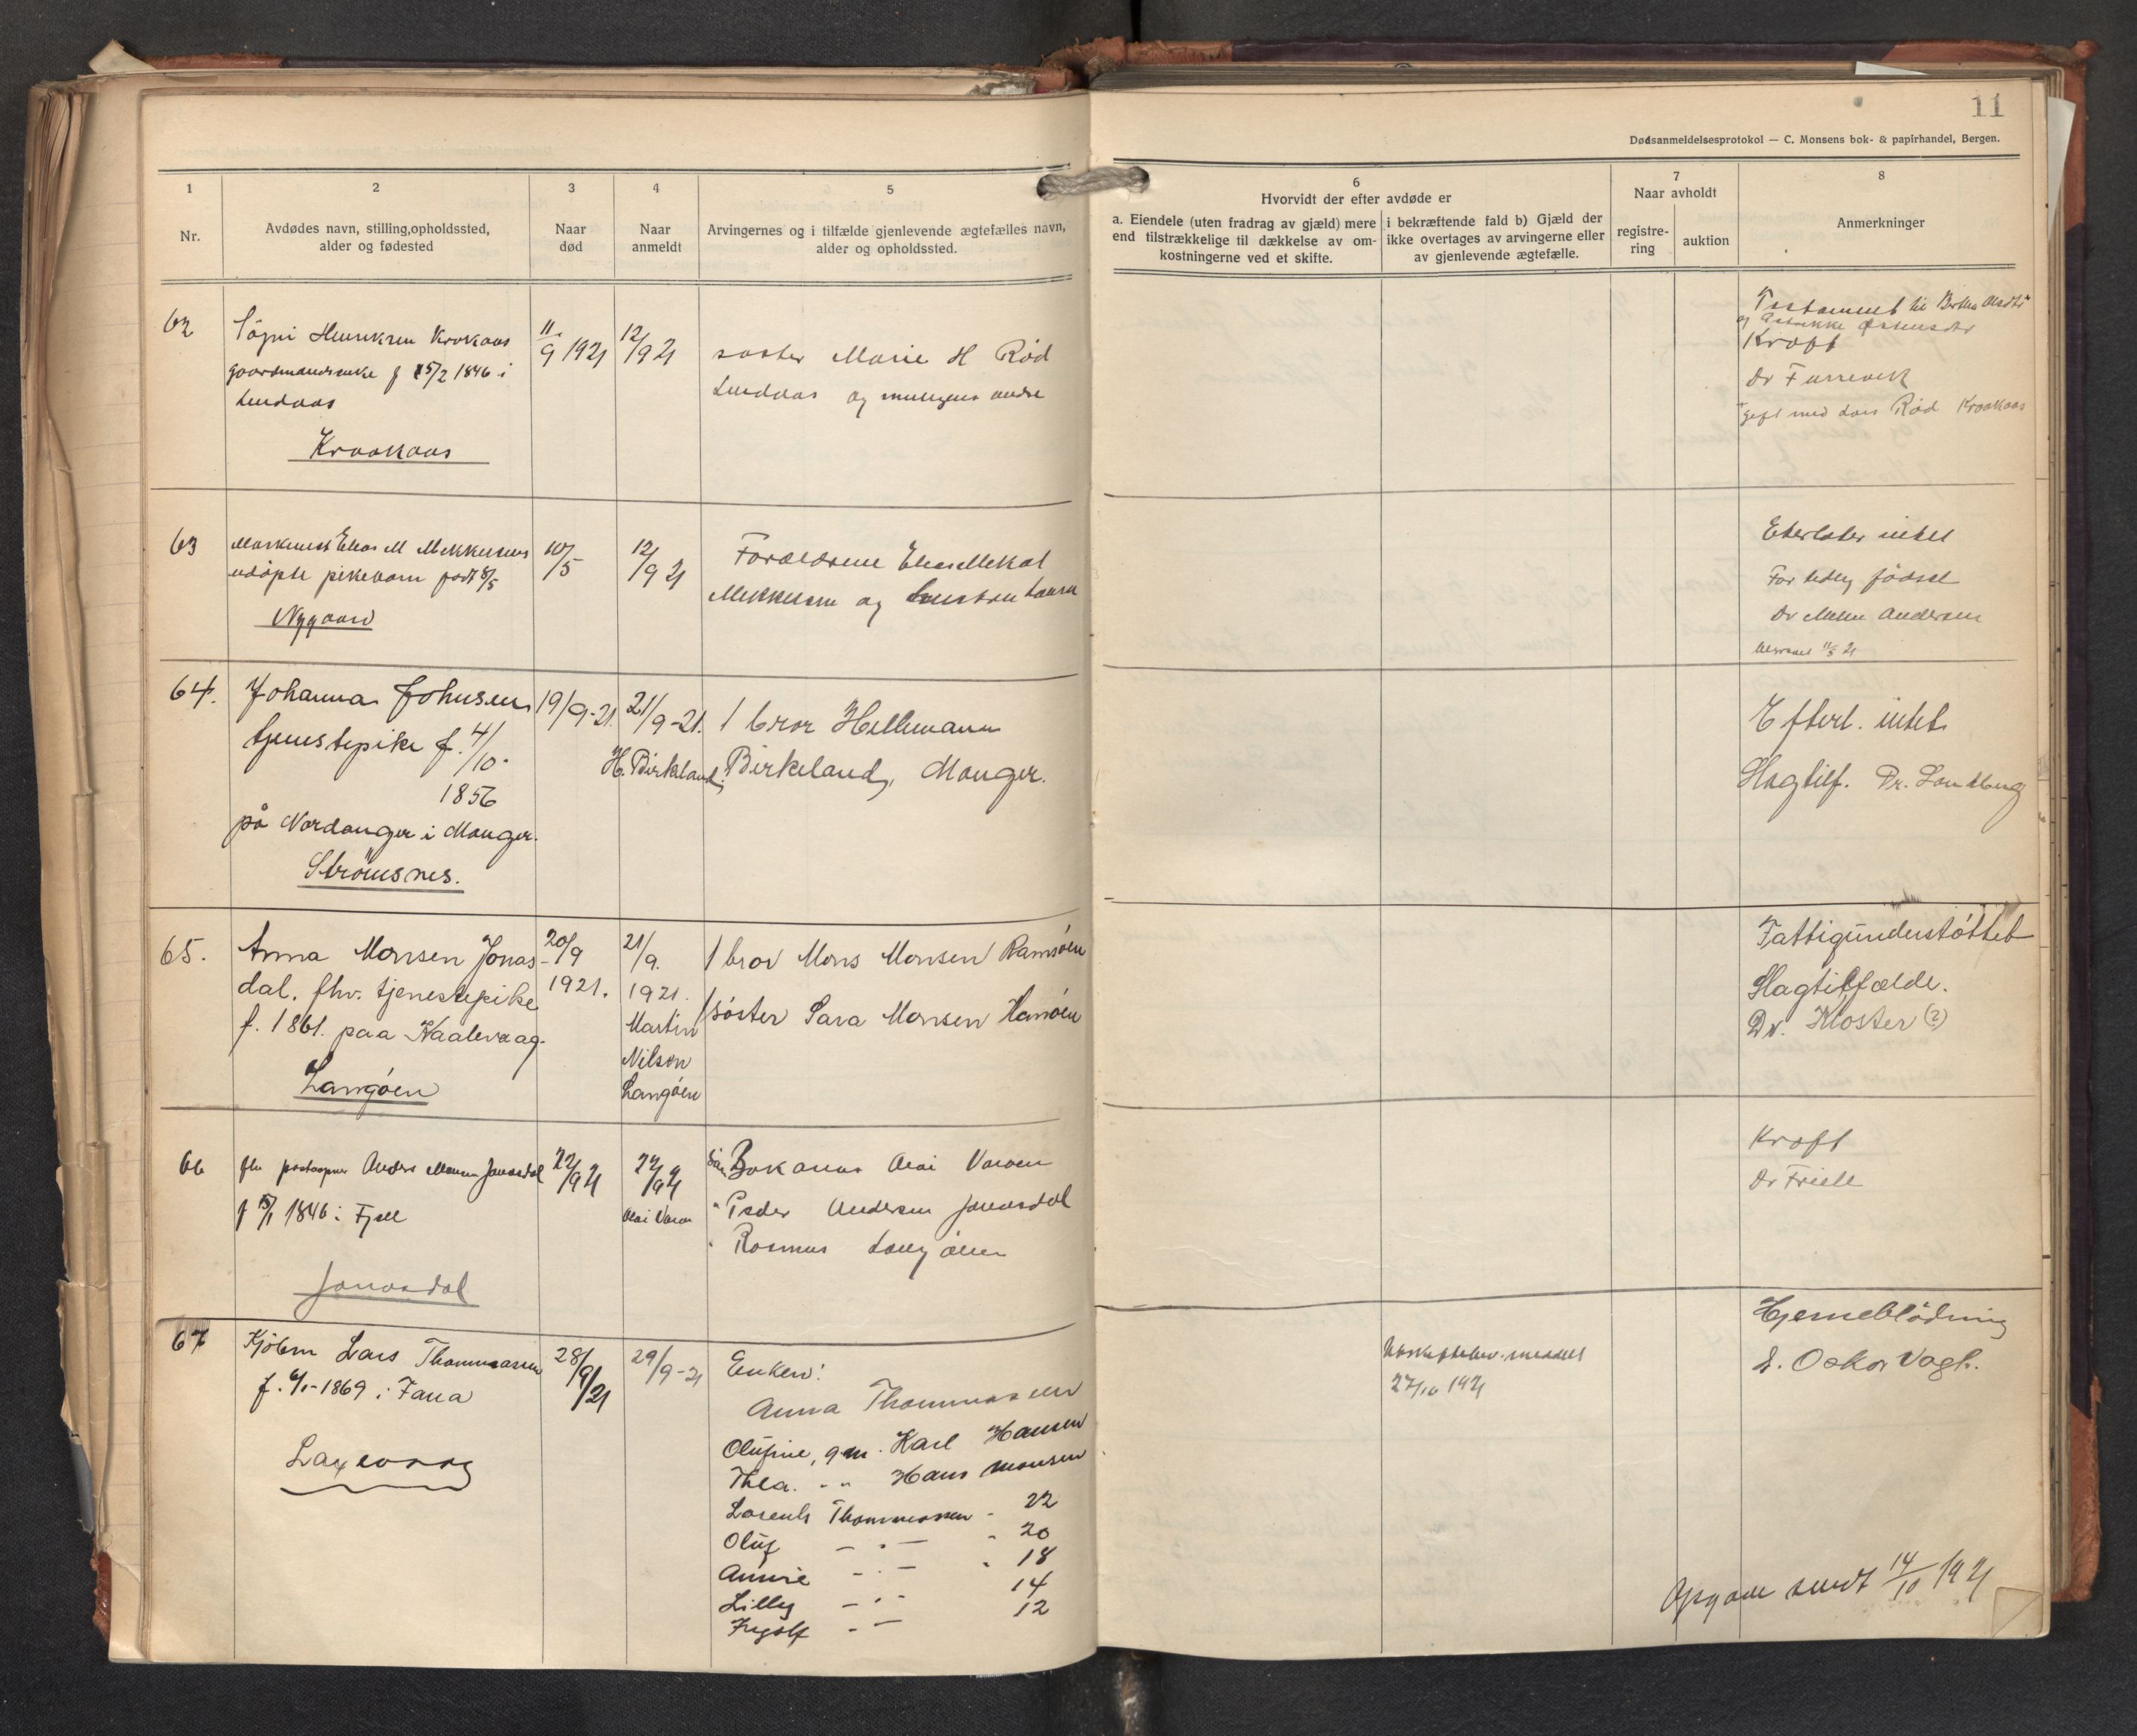 11
Dødsanmeldelsesprotokol — C. Monsens bok- & papirhandel, Bergen.
1
Nr.
2
Avdødes navn, stilling, opholdssted,
alder og fødested
3
Naar
død
4
Naar
anmeldt
5
Arvingernes og i tilfælde gjenlevende ægtefælles navn,
alder og opholdssted.
6
Hvorvidt der efter avdøde er
a. Eiendele (uten fradrag av gjæld) mere
end tilstrækkelige til dækkelse av om-
kostningerne ved et skifte.
i bekræftende fald b) Gjæld der
ikke overtages av arvingerne eller
av gjenlevende ægtefælle.
7
Naar avholdt
registre-
ring
auktion
8
Anmerkninger
62
Henriksen Krokaas
gaardmandsenke f 15/2 1846 i
Lindaas
Kraakaas
11/9 1921
12/9 21
søster Marie H Rød
Lindaas og muligens andre
Testament til
og
Kræft
Dr Furrevik
gift med Lars Rød Kraakaas
63
Elias M Mekkelsens
udøpte pikebarn født 8/5
Nygaard
10/5
12/9 21
Forældrene Elias Mekal
Mikkelsen og hustru Laura
Efterlater intet
For tidlig fødsel
Dr Andersen
11/5 21
64.
Johanna Johnsen
tjenstepike f. 4/10.
1856
på Nordanger i Manger.
Strømsnes.
19/9-21.
21/9-21.
H. Birkeland.
1 bror Hellemann
Birkeland, Manger.
Efterl. intet.
Slagtilf. Dr. Sandberg
65.
Anna Monsen Jonas-
dal. fhv. tjenestepike
f. 1861. paa Kaalevaag.
Langøen
20/9
1921.
21/9.
1921.
Martin
Nilsen
Langøen
1 bror Mons Monsen Ramsøen
1 søster Sara Monsen Hanøen
Fattigunderstøttet
Slagtilfælde.
Dr. Kloster (?)
66
fhv postaapner Anders Monsen Jonasdal
f 15/1 1846 i Fjell
Jonasdal
22/9 21
24/9 21
Olai
Søn Olai
" Peder Andersen Jonasdal
" Rasmus Langøen
Kræft
Dr Friele
67
Kjøbm Lars Thommassen
f. 6/1-1869 i Fana
Laxevaag
28/9/21
29/9-21
Enken:
Anna Thommassen
Olufine, gm. Karl Hansen
Thea. - " Hans Monsen
Lorents Thommassen - 22
Oluf — " — " 20
Annie — " — " 18
Lilly — " — 14
Ingolf - — 12
Uskiftebev. meddelt
27/10 1921
Hjerneblødning
D. Oskar Vogt.
Opgave sendt 14/10 1921